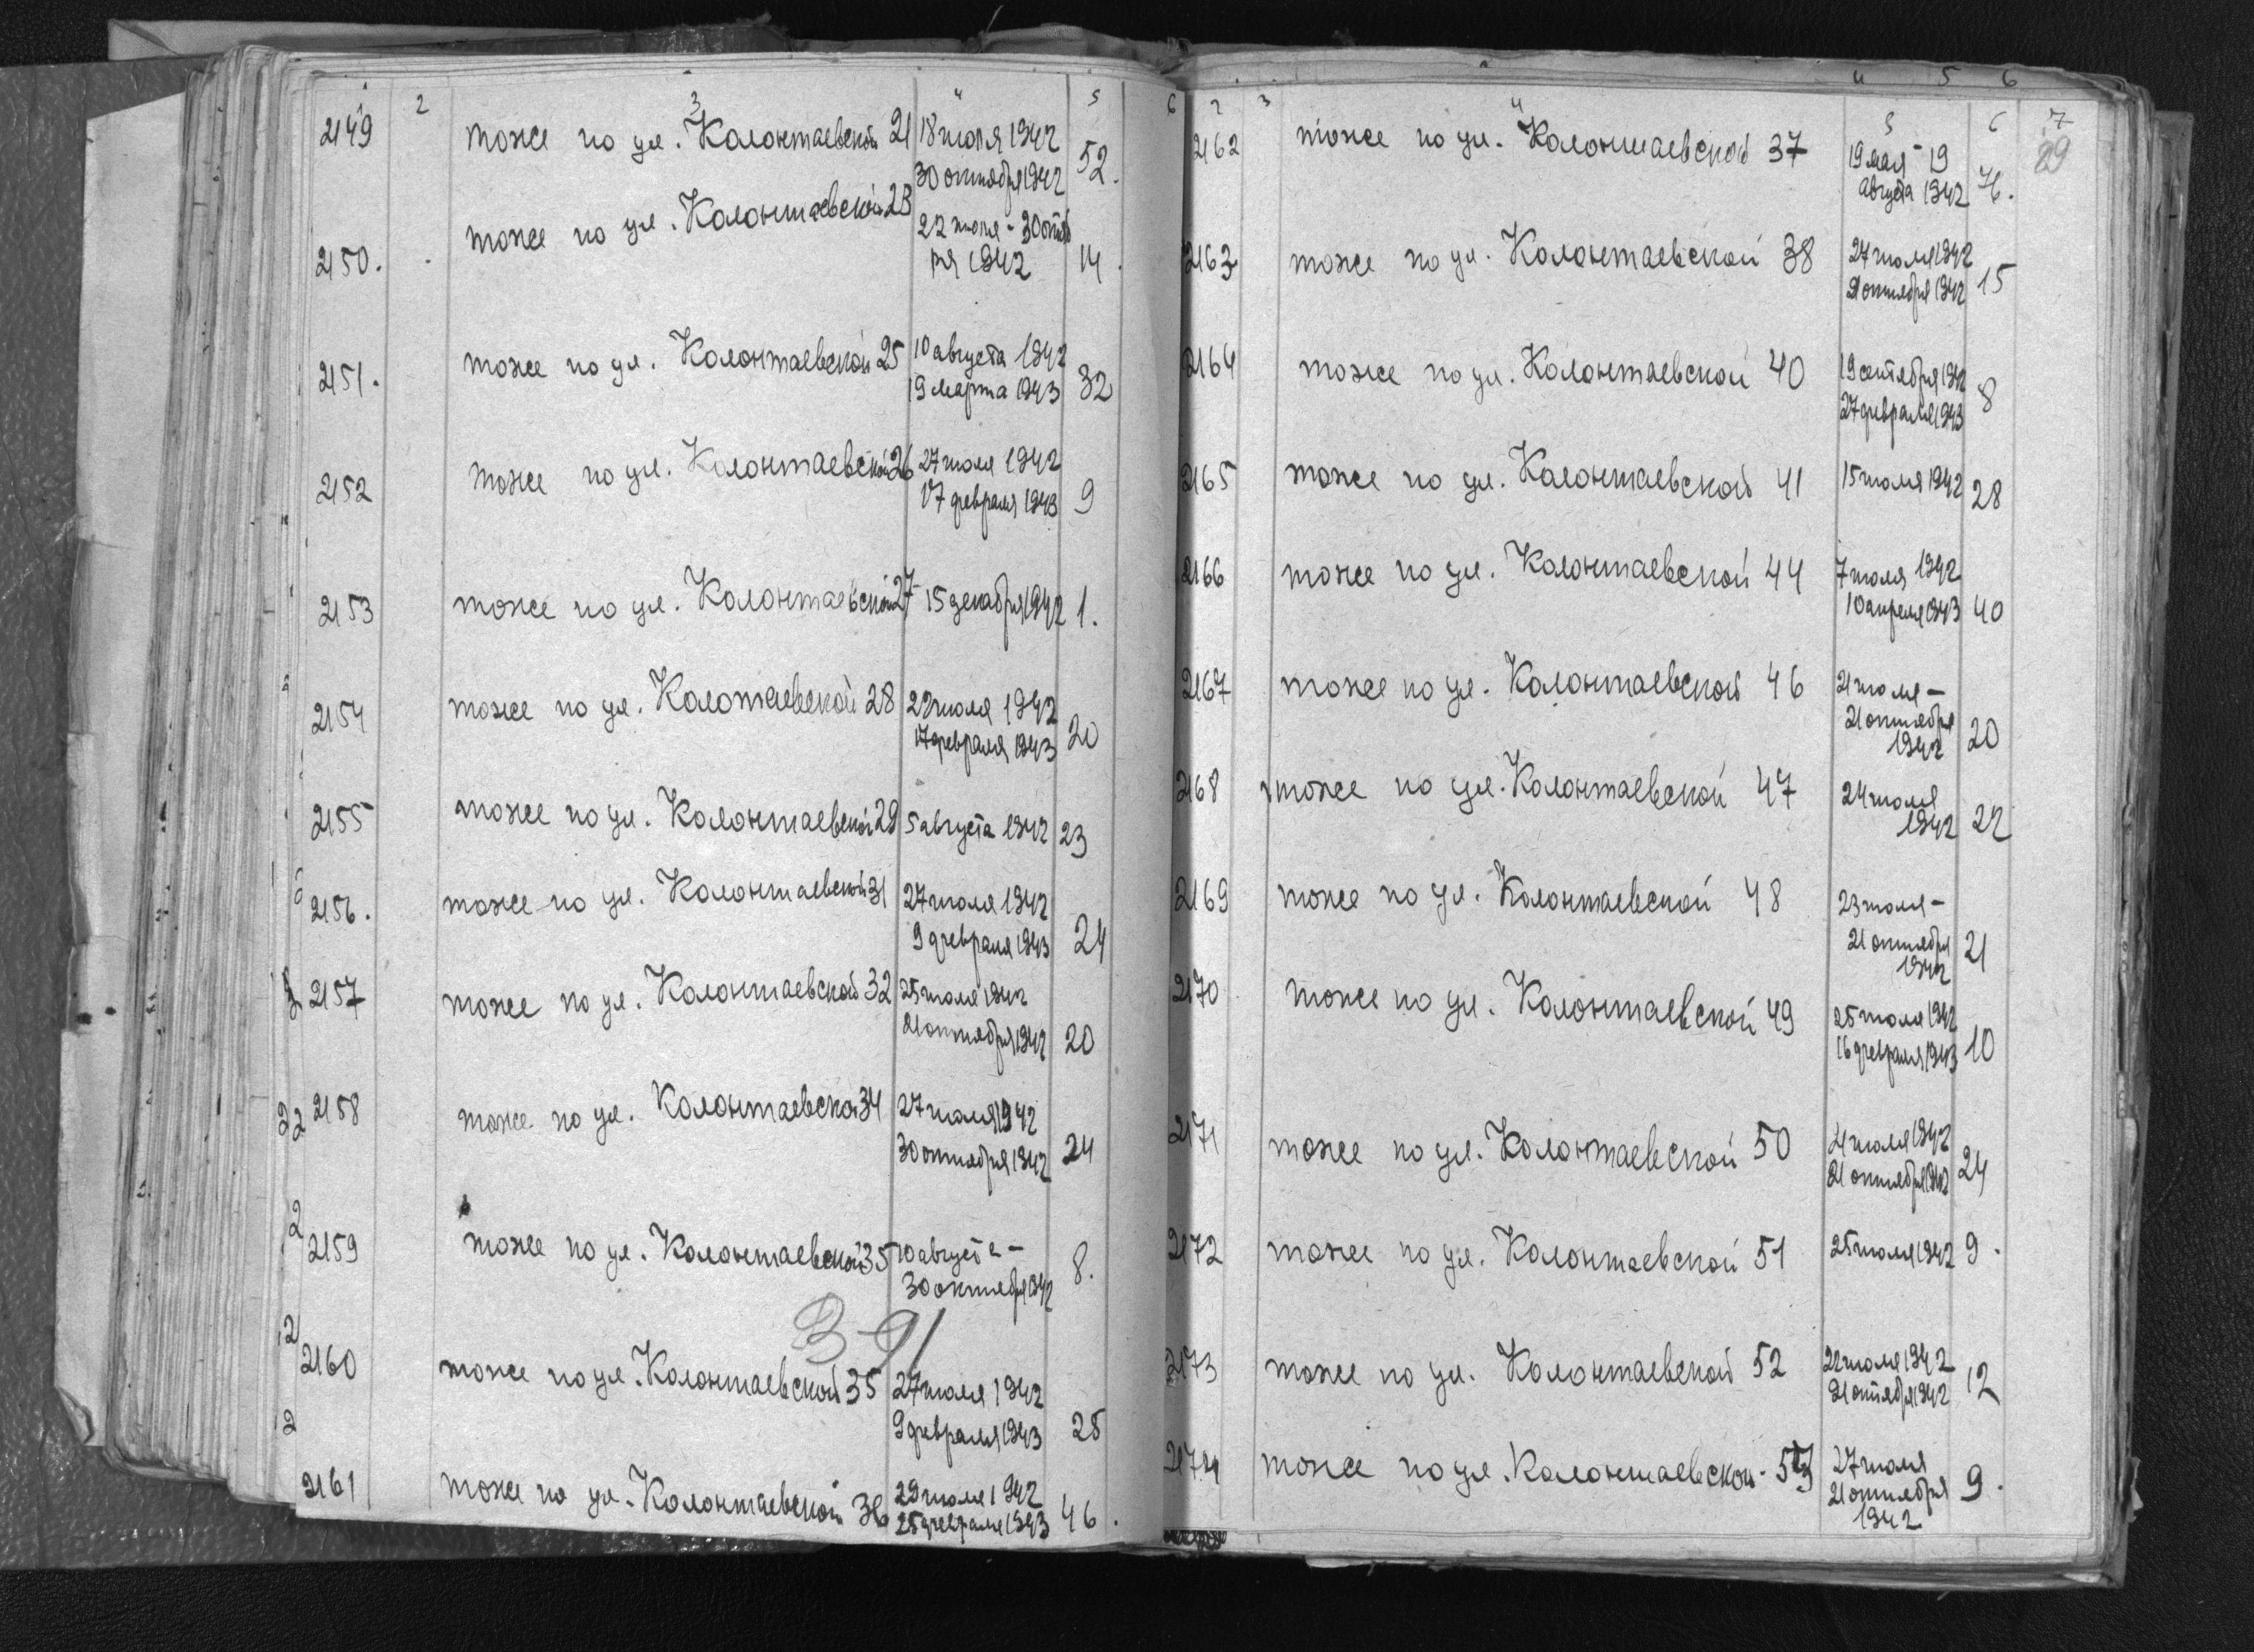 1 2 3 4 5 6
2149 тоже по ул. Колонтаевской 21 18 июля 1942
30 октября 1942 52.
2150. тоже по ул. Колонтаевской 23 22 июля - 30 октяб
ря 1942 14.
2151. тоже по ул. Колонтаевской 25 10 августа 1942
19 марта 1943 32
2152 тоже по ул. Колонтаевской 26 27 июля 1942
17 февраля 1943 9
2153 тоже по ул. Колонтаевской 27 15 декабря 1942 1.
2154 тоже по ул. Колотаевской 28 22 июля 1942
17 февраля 1943 20
2155 тоже по ул. Колонтаевской 29 5 августа 1942 23
2156. тоже по ул. Колонтаевской 31 27 июля 1942
9 февраля 1943 24
2157 тоже по ул. Колонтаевской 32 25 июля 1942
21 октября 1942 20
2158 тоже по ул. Колонтаевской 34 27 июля 1942
30 октября 1942 24
2159 тоже по ул. Колонтаевской 35 10 августа -
30 октября 1942 8.
3-91
2160 тоже по ул. Колонтаевской 35 27 июля 1942
9 февраля 1943 25
2161 тоже по ул. Колонтаевской 36 29 июля 1942
25 февраля 1943 46.
4 5 6
2 3 4 5 6 7
29
2162 тоже по ул. Колонтаевской 37 19 мая - 19
августа 1942
2163 тоже по ул. Колонтаевской 38 27 июля 1942
21 октября 1942 15
2164 тоже по ул. Колонтаевской 40 19 сентября 1942
27 февраля 1943 8
2165 тоже по ул. Колонтаевской 41 15 июля 1942 28
2166 тоже по ул. Колонтаевской 44 7 июля 1942
10 апреля 1943 40
2167 тоже по ул. Колонтаевской 46 21 июля -
21 октября
1942 20
2168 тоже по ул. Колонтаевской 47 24 июля
1942 22
2169 тоже по ул. Колонтаевской 48 23 июля -
21 октября
1942 21
2170 тоже по ул. Колонтаевской 49 25 июля 1942
16 февраля 1943 10
2171 тоже по ул. Колонтаевской 50 21 июля 1942
21 октября 1942 24
2172 тоже по ул. Колонтаевской 51 25 июля 1942 9.
2173 тоже по ул. Колонтаевской 52 22 июля 1942
21 октября 1942 12
2174 тоже по ул. Колонтаевской 53 27 июля
21 октября
1942 9.